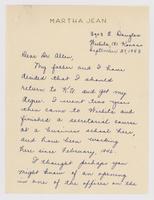 MARTHA JEAN
3503 E Douglas
Wichita, Kansas
September 27, 1953
Dear Dr. Allen,
My father and I have
decided that I should
return to K.U. and get my
degree. I went two years
then came to Wichita and
finished a secretarial course
at a business school here,
and have been working
here since February, 1952.
I thought perhaps you
might know of an opening
in one of the offices on the